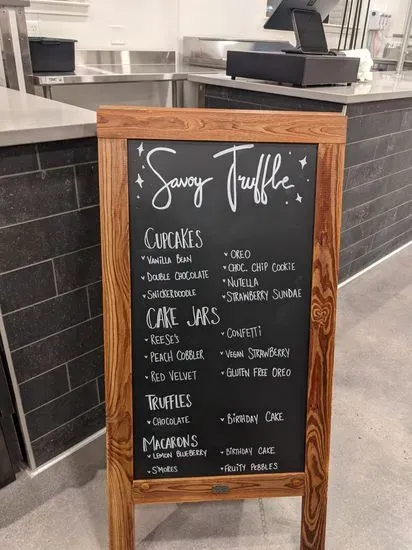 Savoy Truffle
CUPCAKES
VANILLA BEAN
OREO
DOUBLE CHOCOLATE
CHOC. CHIP COOKIE
SNICKERDOODLE
NUTELLA
STRAWBERRY SUNDAE
CAKE JARS
REESE'S
CONFETTI
PEACH COBBLER
VEGAN STRAWBERRY
RED VELVET
GLUTEN FREE OREO
TRUFFLES
CHOCOLATE
BIRTHDAY CAKE
MACARONS
LEMON BLUEBERRY
BIRTHDAY CAKE
S'MORES
FRUITY PEBBLES